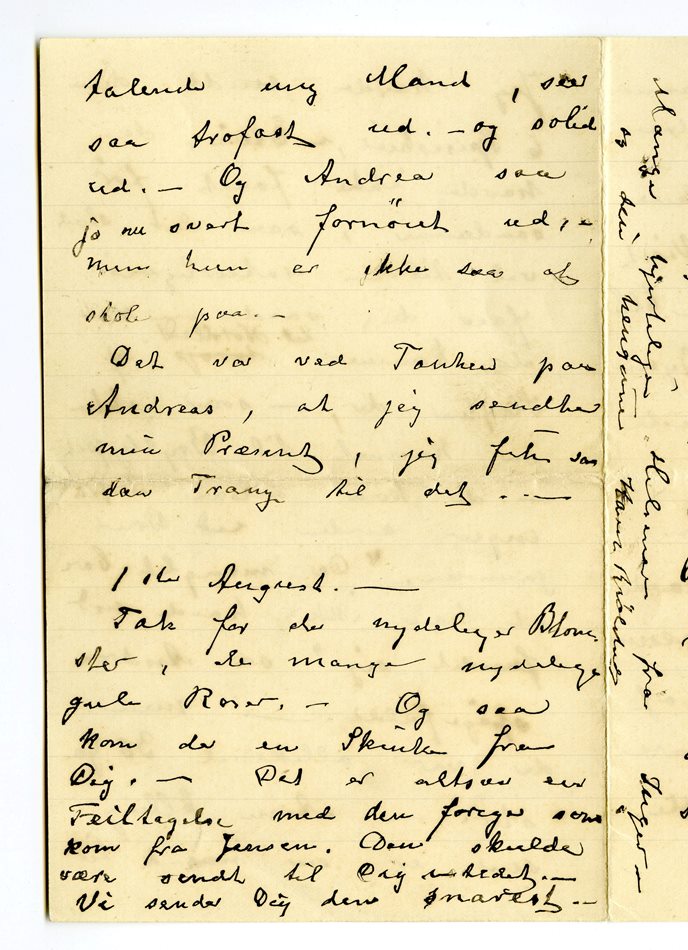 talende ung Mand, ser
saa trofast ud. – og solid
ud. – Og Andrea saa
jo nu svært fornöiet ud, –
men hun er ikke saa at
stole paa. –
Det var ved Tanken paa
Andreas, at jeg sendte
min Præsent, jeg fik saa
dan Trang til det. . –
1ste August. —
Tak for de nydelige Blom
ster, de mange nydelige
gule Roser. – Og saa
kom der en Skinke fra
Dig. – Det er altsaa en
Feiltagelse med den forrige som
kom fra Jensen. Den skulde
være sendt til Dig istedet. –
Vi sender Dig den snarest. –
Mange hjertelige Hilsener fra Inger –
og din hengivne